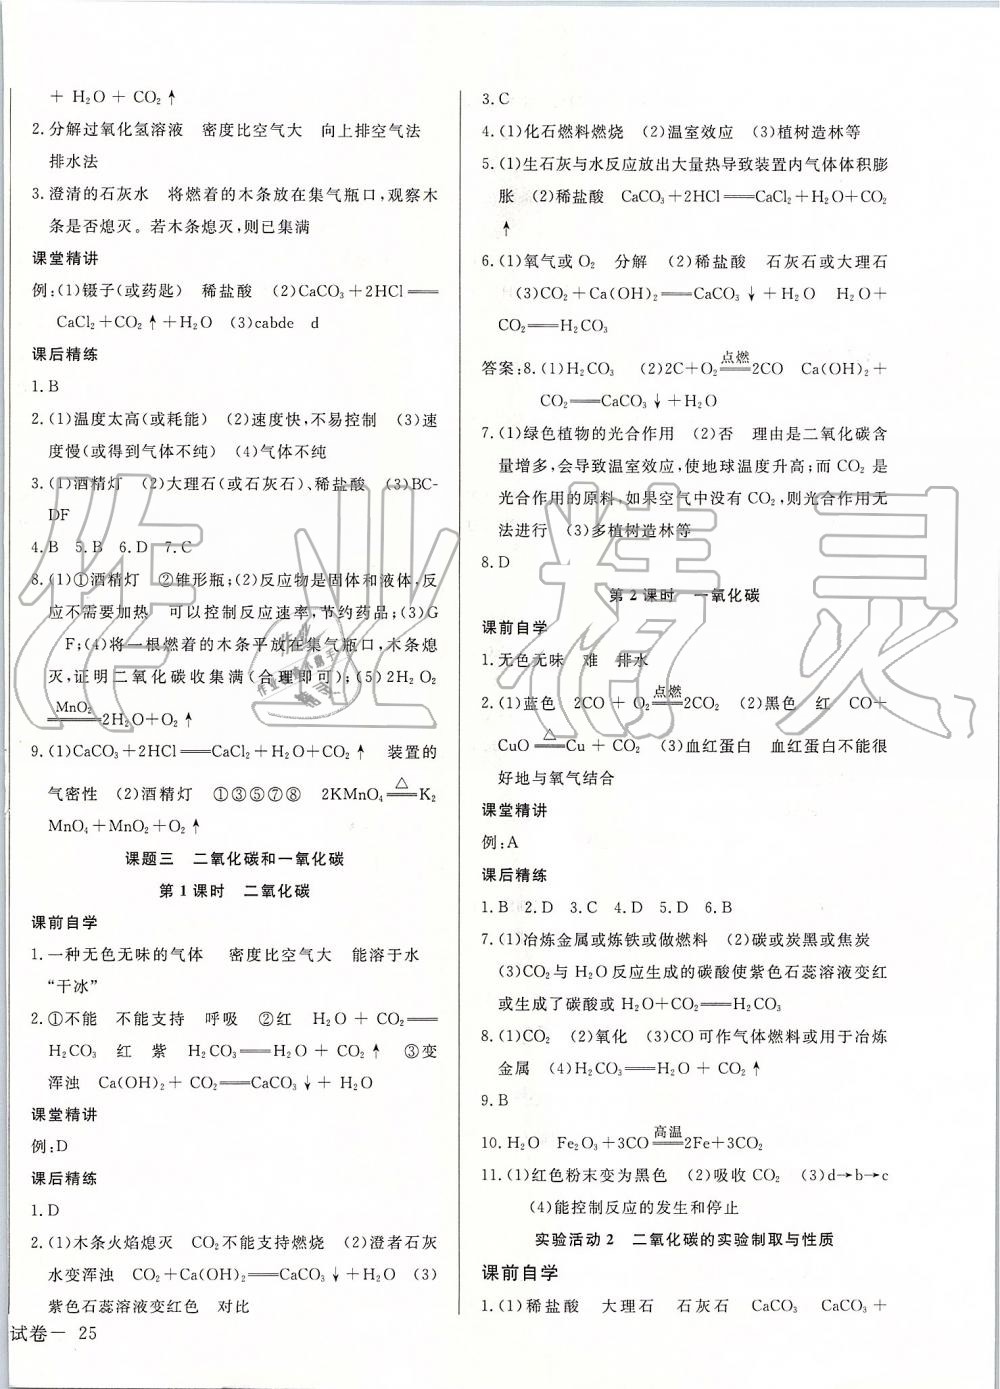 + H₂O + CO₂↑
2.分解过氧化氢溶液 密度比空气大 向上排空气法
排水法
3.澄清的石灰水 将燃着的木条放在集气瓶口,观察木
条是否熄灭。若木条熄灭,则已集满
课堂精讲
例:(1)镊子(或药匙) 稀盐酸 (2)CaCO₃+2HCl══
CaCl₂+CO₂↑+H₂O (3)cabde d
课后精练
1.B
2.(1)温度太高(或耗能) (2)速度快,不易控制 (3)速
度慢(或得到气体不纯) (4)气体不纯
3.(1)酒精灯 (2)大理石(或石灰石)、稀盐酸 (3)BC-
DF
4.B 5.B 6.D 7.C
8.(1)①酒精灯 ②锥形瓶;(2)反应物是固体和液体,反
应不需要加热 可以控制反应速率,节约药品;(3)G
F;(4)将一根燃着的木条平放在集气瓶口,木条熄
灭,证明二氧化碳收集满(合理即可);(5)2H₂O₂
MnO₂
══2H₂O+O₂↑
9.(1)CaCO₃+2HCl══CaCl₂+H₂O+CO₂↑ 装置的
气密性 (2)酒精灯 ①③⑤⑦⑧ 2KMnO₄△══K₂
MnO₄+MnO₂+O₂↑
课题三 二氧化碳和一氧化碳
第1课时 二氧化碳
课前自学
1.一种无色无味的气体 密度比空气大 能溶于水
“干冰”
2.①不能 不能支持 呼吸 ②红 H₂O + CO₂══
H₂CO₃ 红 紫 H₂CO₃══H₂O + CO₂↑ ③变
浑浊 Ca(OH)₂+ CO₂══CaCO₃↓+ H₂O
课堂精讲
例:D
课后精练
1.D
2.(1)木条火焰熄灭 CO₂不能支持燃烧 (2)澄者石灰
水变浑浊 CO₂+Ca(OH)₂══CaCO₃↓+H₂O (3)
紫色石蕊溶液变红色 对比
试卷— 25
3.C
4.(1)化石燃料燃烧 (2)温室效应 (3)植树造林等
5.(1)生石灰与水反应放出大量热导致装置内气体体积膨
胀 (2)稀盐酸 CaCO₃+2HCl══CaCl₂+H₂O+CO₂
↑
6.(1)氧气或O₂ 分解 (2)稀盐酸 石灰石或大理石
(3)CO₂+Ca(OH)₂══CaCO₃↓+H₂O H₂O+
CO₂══H₂CO₃
答案:8.(1)H₂CO₃ (2)2C+O₂点燃══2CO Ca(OH)₂+
CO₂══CaCO₃↓+H₂O
7.(1)绿色植物的光合作用 (2)否 理由是二氧化碳含
量增多,会导致温室效应,使地球温度升高;而CO₂是
光合作用的原料,如果空气中没有CO₂,则光合作用无
法进行 (3)多植树造林等
8.D
第2课时 一氧化碳
课前自学
1.无色无味 难 排水
2.(1)蓝色 2CO + O₂点燃══2CO₂ (2)黑色 红 CO+
CuO△══Cu + CO₂ (3)血红蛋白 血红蛋白不能很
好地与氧气结合
课堂精讲
例:A
课后精练
1.B 2.D 3.C 4.D 5.D 6.B
7.(1)冶炼金属或炼铁或做燃料 (2)碳或炭黑或焦炭
(3)CO₂与H₂O反应生成的碳酸使紫色石蕊溶液变红
或生成了碳酸或H₂O+CO₂══H₂CO₃
8.(1)CO₂ (2)氧化 (3)CO可作气体燃料或用于冶炼
金属 (4)H₂CO₃══H₂O + CO₂↑
9.B
10.H₂O Fe₂O₃+3CO高温══2Fe+3CO₂
11.(1)红色粉末变为黑色 (2)吸收CO₂ (3)d→b→c
(4)能控制反应的发生和停止
实验活动2 二氧化碳的实验制取与性质
课前自学
1.(1)稀盐酸 大理石 石灰石 CaCO₃ CaCO₃ +
作业精灵